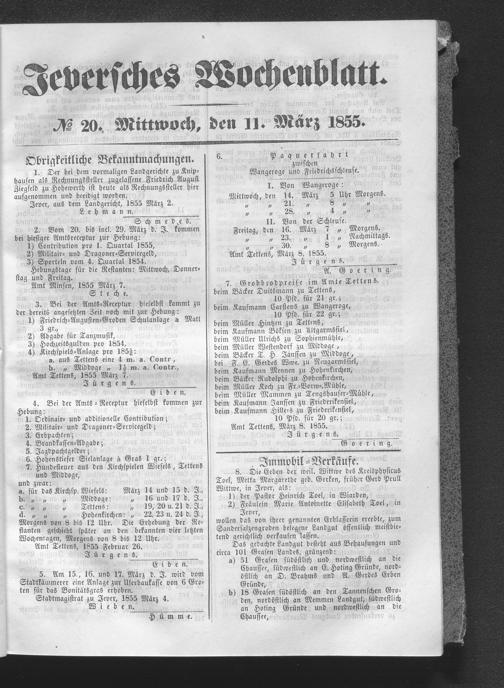 Jeversches Wochenblatt.
№ 20. Mittwoch, den 11. März 1855.
Obrigkeitliche Bekanntmachungen.
1. Der bei dem vormaligen Landgerichte zu Knip-
hausen als Rechnungssteller zugelassene Friedrich August
Ziegfeld zu Hohewerth ist heute als Rechnungssteller hier
aufgenommen und beeidigt worden.
Jever, aus dem Landgericht, 1855 März 2.
Lehmann.
Schmedes.
2. Vom 20. bis incl. 29. März d. J. kommen
bei hiesiger Amtsreceptur zur Hebung:
1) Contribution pro 1. Quartal 1855,
2) Militair- und Dragoner-Servicegeld,
3) Sporteln vom 4. Quartal 1854.
Hebungstage für die Restanten: Mittwoch, Donners-
tag und Freitag.
Amt Minsen, 1855 März 7.
3. Bei der Amts-Receptur hieselbst kommt zu
der bereits angesetzten Zeit noch mit zur Hebung:
1) Friedrich-Augusten-Groden Schulanlage a Matt
3 gr.,
2) Abgabe für Tanzmusik,
3) Hochzeitsgulden pro 1854.
4) Kirchspiels-Anlage pro 1855:
a. aus Tettens eine 4 m. a. Contr.,
b. „ Middoge „ 1½ m. a. Contr.,
Amt Tettens, 1855 März 7.
Jürgens.
Eiben.
4. Bei der Amts-Receptur hieselbst kommen zur
Hebung:
1. Ordinaire und additionelle Contribution;
2. Militair- und Dragoner-Servicegeld;
3. Erbpachten;
4. Brandkassen-Abgabe;
5. Jagdpachtgelder;
6. Hohenstiefer Sielanlage à Gras 1 gr.;
7. Hundesteuer aus den Kirchspielen Wiefels, Tettens
und Middoge,
und zwar:
a. für das Kirchsp. Wiefels: März 14 und 15 d. J.,
b. „ „ „ Middoge: „ 16 und 17 d. J.,
c. „ „ „ Tettens: „ 19, 20 u. 21 d. J.,
d. „ „ „ Hohenkirchen: „ 22, 23 u. 24 d. J.,
Morgens von 8 bis 12 Uhr. Die Erhebung der Re-
stanten geschieht später an den bekannten vier letzten
Wochentagen, Morgens von 8 bis 12 Uhr.
Amt Tettens, 1855 Februar 26.
Jürgens.
Eiben.
5. Am 15., 16. und 17. März d. J. wird vom
Stadtkämmerer eine Anlage zur Uferbaukasse von 6 Gro-
ten für das Bonitätsgras erhoben.
Stadtmagistrat zu Jever, 1855 März 4.
Wieben.
Hümme.
6. Paquetfahrt
zwischen
Wangeroge und Friedrichsschleuse.
I. Von Wangeroge:
Mittwoch, den 14. März 5 Uhr Morgens.
„ „ 21. „ 8 „ „
„ „ 28. „ 4 „ „
II. Von der Schleuse.
Freitag, den 16. März 7 „ Morgens,
„ „ 23. „ 1 „ Nachmittags.
„ „ 30. „ 8 „ Morgens.
Amt Tettens, März 8. 1855.
Jürgens.
A. Goering.
7. Grobbrodpreise im Amte Tettens.
beim Bäcker Duitsmann zu Tettens,
10 Pfd. für 21 gr.;
beim Kaufmann Carstens zu Wangeroge,
10 Pfd. für 22 gr.;
beim Müller Hinrichs zu Tettens,
beim Kaufmann Böksen zu Altgarmssiel,
beim Müller Ulrichs zu Sophienmühle,
beim Müller Westendorf zu Middoge,
beim Bäcker T. H. Janssen zu Middoge,
bei F. E. Gerdes Wwe. zu Neugarmssiel,
beim Kaufmann Mennen zu Hohenkirchen,
beim Bäcker Rudolphi zu Hohenkirchen,
beim Müller Koch zu Fr.-Bows-Mühle,
beim Müller Mammen zu Tengshauser-Mühle,
beim Kaufmann Janssen zu Friederikensiel,
beim Kaufmann Hillers zu Friederikensiel,
10 Pfd. für 20 gr.;
Amt Tettens, März 8. 1855.
Jürgens.
Goering.
Immobil-Verkäufe.
8. Die Erben der weil. Wittwe des Kreisphysicus
Toel, Metta Margarethe geb. Gerken, früher Gerd Prull
Wittwe, in Jever, als:
1) der Pastor Heinrich Toel, in Wiarden,
2) Fräulein Marie Antoinette Elisabeth Toel, in
Jever,
wollen das von ihrer genannten Erblasserin ererbte, zum
Sandelermöns belegene Landgut öffentlich meistbie-
tend gerichtlich verkaufen lassen.
Das gedachte Landgut besteht aus Behausungen und
circa 101 Grasen Landes, gränzend:
a) 51 Grasen südöstlich und nordwestlich an die
Chaussee, südwestlich an G. Hoting Gründe, nord-
östlich an D. Brahms und R. Gerdes Erben
Gründe,
b) 18 Grasen südöstlich an den Tannenschen Gro-
den, nordöstlich an Memmen Landgut, südwestlich
an Hoting Gründe und nordwestlich an die
Chaussee,